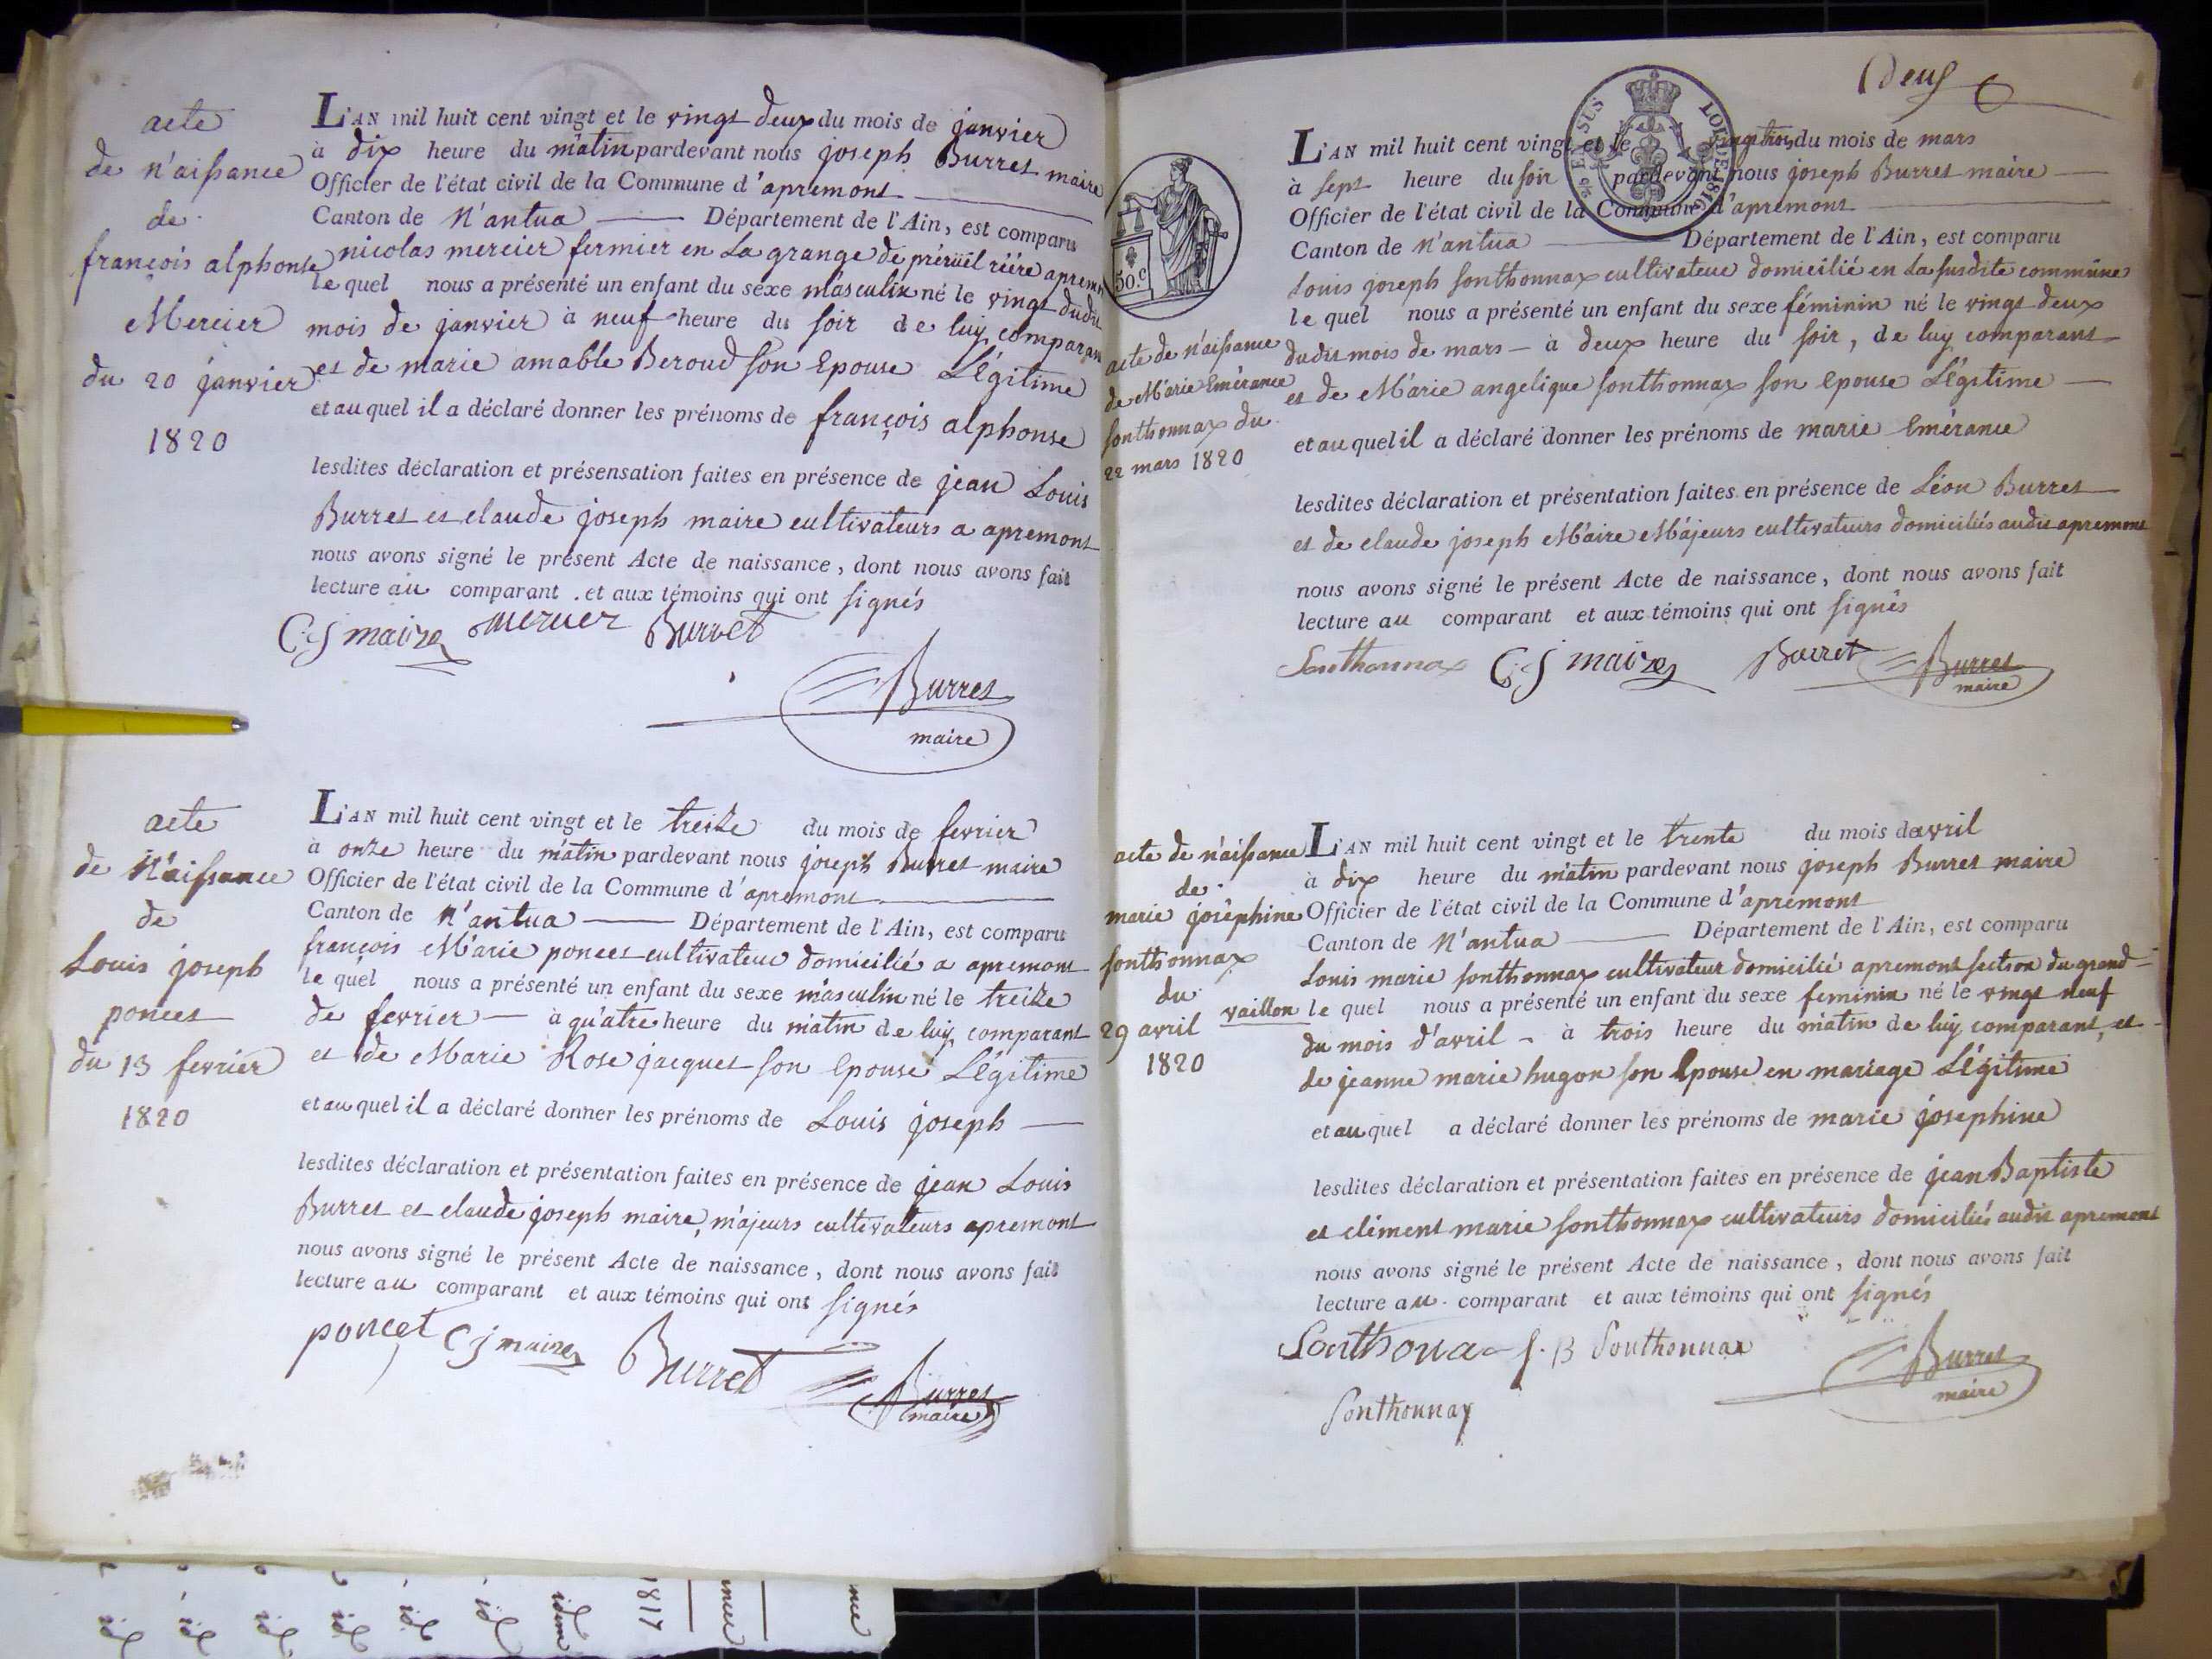 acte
de n'aissance
de
françois alphonse
Mercier
du 20 janvier
1820
L'AN mil huit cent vingt et le vingt deux du mois de janvier
à dix heure du matin pardevant nous joseph Burret maire
Officier de l'état civil de la Commune d'apremont
Canton de N'antua Département de l'Ain, est comparu
nicolas mercier fermier en La grange de
le quel nous a présenté un enfant du sexe masculin né le vingt dudit
mois de janvier à neuf heure du soir de luy comparant
et de marie amable Beroud son Epouse Légitime
et au quel il a déclaré donner les prénoms de françois alphonse
lesdites déclaration et présensation faites en présence de jean Louis
Burret et claude joseph maire cultivateurs a apremont
nous avons signé le présent Acte de naissance, dont nous avons fait
lecture au comparant . et aux témoins qui ont signés
C. j maire mercier Burret
Burret
maire
acte
de N'aissance
de
Louis joseph
poncet
du 13 fevrier
1820
L'AN mil huit cent vingt et le treize du mois de fevrier
à onze heure du matin pardevant nous joseph Burret maire
Officier de l'état civil de la Commune d'apremont
Canton de N'antua Département de l'Ain, est comparu
françois Marie poncet cultivateur domicilié a apremont
le quel nous a présenté un enfant du sexe masculin né le treize
de fevrier à qu'atre heure du matin de luy comparant
et de Marie Rose jacquet son Epouse Légitime
et au quel il a déclaré donner les prénoms de Louis joseph
lesdites déclaration et présentation faites en présence de jean Louis
Burret et claude joseph maire, majeurs cultivateurs apremont
nous avons signé le présent Acte de naissance, dont nous avons fait
lecture au comparant et aux témoins qui ont signés
poncet C j maire Burret
Burret
maire
deux
50.c
acte de n'aissance
de Marie Emérance
sonthonnax du
22 mars 1820
L'AN mil huit cent vingt et le vingt trois du mois de mars
à sept heure du soir pardevant nous joseph Burret maire
Officier de l'état civil de la Commune d'apremont
Canton de N'antua Département de l'Ain, est comparu
Louis joseph sonthonnax cultivateur domicilié en la susdite commune
le quel nous a présenté un enfant du sexe féminin né le vingt deux
dudit mois de mars à deux heure du soir, de luy comparant
et de Marie angelique sonthonnax son epouse Légitime
et au quel il a déclaré donner les prénoms de marie Emérance
lesdites déclaration et présentation faites en présence de Léon Burret
et de claude joseph Maire Majeurs cultivateurs domiciliés audit apremont
nous avons signé le présent Acte de naissance, dont nous avons fait
lecture au comparant et aux témoins qui ont signés
Sonthonnax C. j maire Burret Burret
maire
acte de n'aissance
de
marie joséphine
sonthonnax
du
29 avril
1820
L'AN mil huit cent vingt et le trente du mois davril
à dix heure du matin pardevant nous joseph Burret maire
Officier de l'état civil de la Commune d'apremont
Canton de N'antua Département de l'Ain, est comparu
Louis marie sonthonnax cultivateur domicilié apremont section du grand
vaillon le quel nous a présenté un enfant du sexe feminin né le vingt neuf
du mois d'avril à trois heure du matin de luy comparant, et
de jeanne marie hugon son Epouse en mariage Légitime
et au quel a déclaré donner les prénoms de marie josephine
lesdites déclaration et présentation faites en présence de jean Baptiste
et clément marie sonthonnax cultivateurs domiciliés audit apremont
nous avons signé le présent Acte de naissance, dont nous avons fait
lecture au comparant et aux témoins qui ont signés
Sonthona j. B Sonthonnax
Burret
maire
Sonthonnax
1817